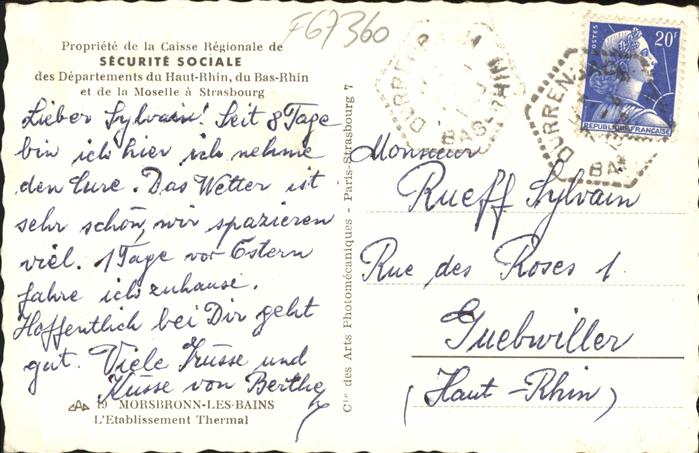 F67360
Propriété de la Caisse Régionale de
SÉCURITÉ SOCIALE
des Départements du Haut-Rhin, du Bas-Rhin
et de la Moselle à Strasbourg
Lieber Sylvain! Seit 8 Tage
bin ich hier ich nehme
den Cure. Das Wetter ist
sehr schön, wir spazieren
viel. 1 Tage vor Ostern
fahre ich zuhause.
Hoffentlich bei Dir geht
gut. Viele Grüsse und
Küsse von Berthe
19 MORSBRONN-LES-BAINS
L'Etablissement Thermal
Cie des Arts Photomécaniques - Paris-Strasbourg 7
DURRENBACH
BAS-RHIN
POSTES
20F
REPUBLIQUE FRANÇAISE
DURRENBACH
BAS
Monsieur
Rueff Sylvain
Rue des Roses 1.
Guebwiller
(Haut-Rhin)